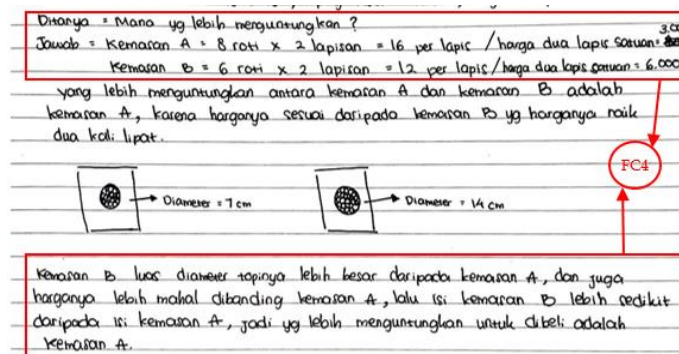 Ditanya = Mana yg lebih menguntungkan ?
Jawab = Kemasan A = 8 roti x 2 lapisan = 16 per lapis / harga dua lapis satuan = 3.00
Kemasan B = 6 roti x 2 lapisan = 12 per lapis / harga dua lapis satuan = 6.000
yang lebih menguntungkan antara kemasan A dan kemasan B adalah
kemasan A, karena harganya sesuai daripada kemasan B yg harganya naik
dua kali lipat.
FC4
Diameter = 7 cm
Diameter = 14 cm
Kemasan B luas diameter topinya lebih besar daripada kemasan A, dan juga
harganya lebih mahal dibanding kemasan A, lalu isi kemasan B lebih sedikit
daripada isi kemasan A, jadi yg lebih menguntungkan untuk dibeli adalah
Kemasan A.